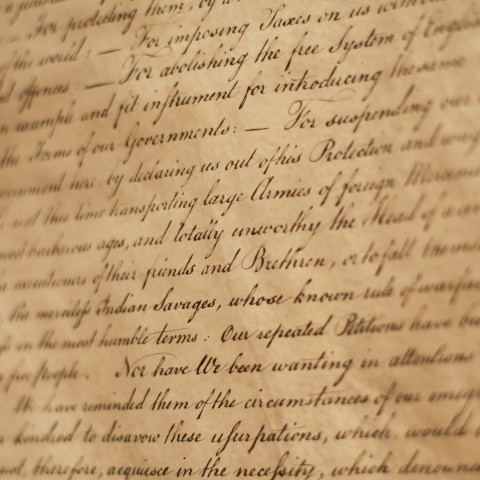 For protecting them, by
of the world: — For imposing Taxes on us without
offences: — For abolishing the free System of English
example and fit instrument for introducing the same
the Forms of our Governments: — For suspending our
vernment here, by declaring us out of his Protection and
at this time transporting large Armies of foreign Mercena
most barbarous ages, and totally unworthy the Head of a
executioners of their friends and Brethren, or to fall themse
the merciless Indian Savages, whose known rule of warfare
in the most humble terms: Our repeated Petitions have bee
a free people. Nor have We been wanting in attentions
We have reminded them of the circumstances of our emigr
kindred to disavow these usurpations, which, would
must, therefore, acquiesce in the necessity, which denounc